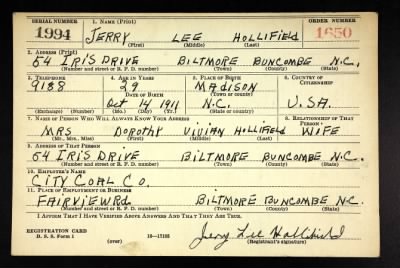 SERIAL NUMBER 1. NAME (Print) ORDER NUMBER
1994 JERRY LEE HOLLIFIELD 1650
(First) (Middle) (Last)
2. ADDRESS (Print)
54 IRIS DRIVE BILTMORE BUNCOMBE N.C.
(Number and street or R. F. D. number) (Town) (County) (State)
3. TELEPHONE 4. AGE IN YEARS 5. PLACE OF BIRTH 6. COUNTRY OF CITIZENSHIP
9188 29 MADISON
DATE OF BIRTH (Town or county)
Oct 14, 1911 N.C. U.S.A.
(Exchange) (Number) (Mo.) (Day) (Yr.) (State or country)
7. NAME OF PERSON WHO WILL ALWAYS KNOW YOUR ADDRESS 8. RELATIONSHIP OF THAT PERSON
MRS DOROTHY VIVIAN HOLLIFIELD WIFE
(Mr., Mrs., Miss) (First) (Middle) (Last)
9. ADDRESS OF THAT PERSON
54 IRIS DRIVE BILTMORE BUNCOMBE N.C.
(Number and street or R. F. D. number) (Town) (County) (State)
10. EMPLOYER'S NAME
CITY COAL CO.
11. PLACE OF EMPLOYMENT OR BUSINESS
FAIRVIEW RD BILTMORE BUNCOMBE N.C.
(Number and street or R. F. D. number) (Town) (County) (State)
I AFFIRM THAT I HAVE VERIFIED ABOVE ANSWERS AND THAT THEY ARE TRUE.
REGISTRATION CARD
D. S. S. Form 1 16—17105 Jerry Lee Hollifield
(over) (Registrant's signature)